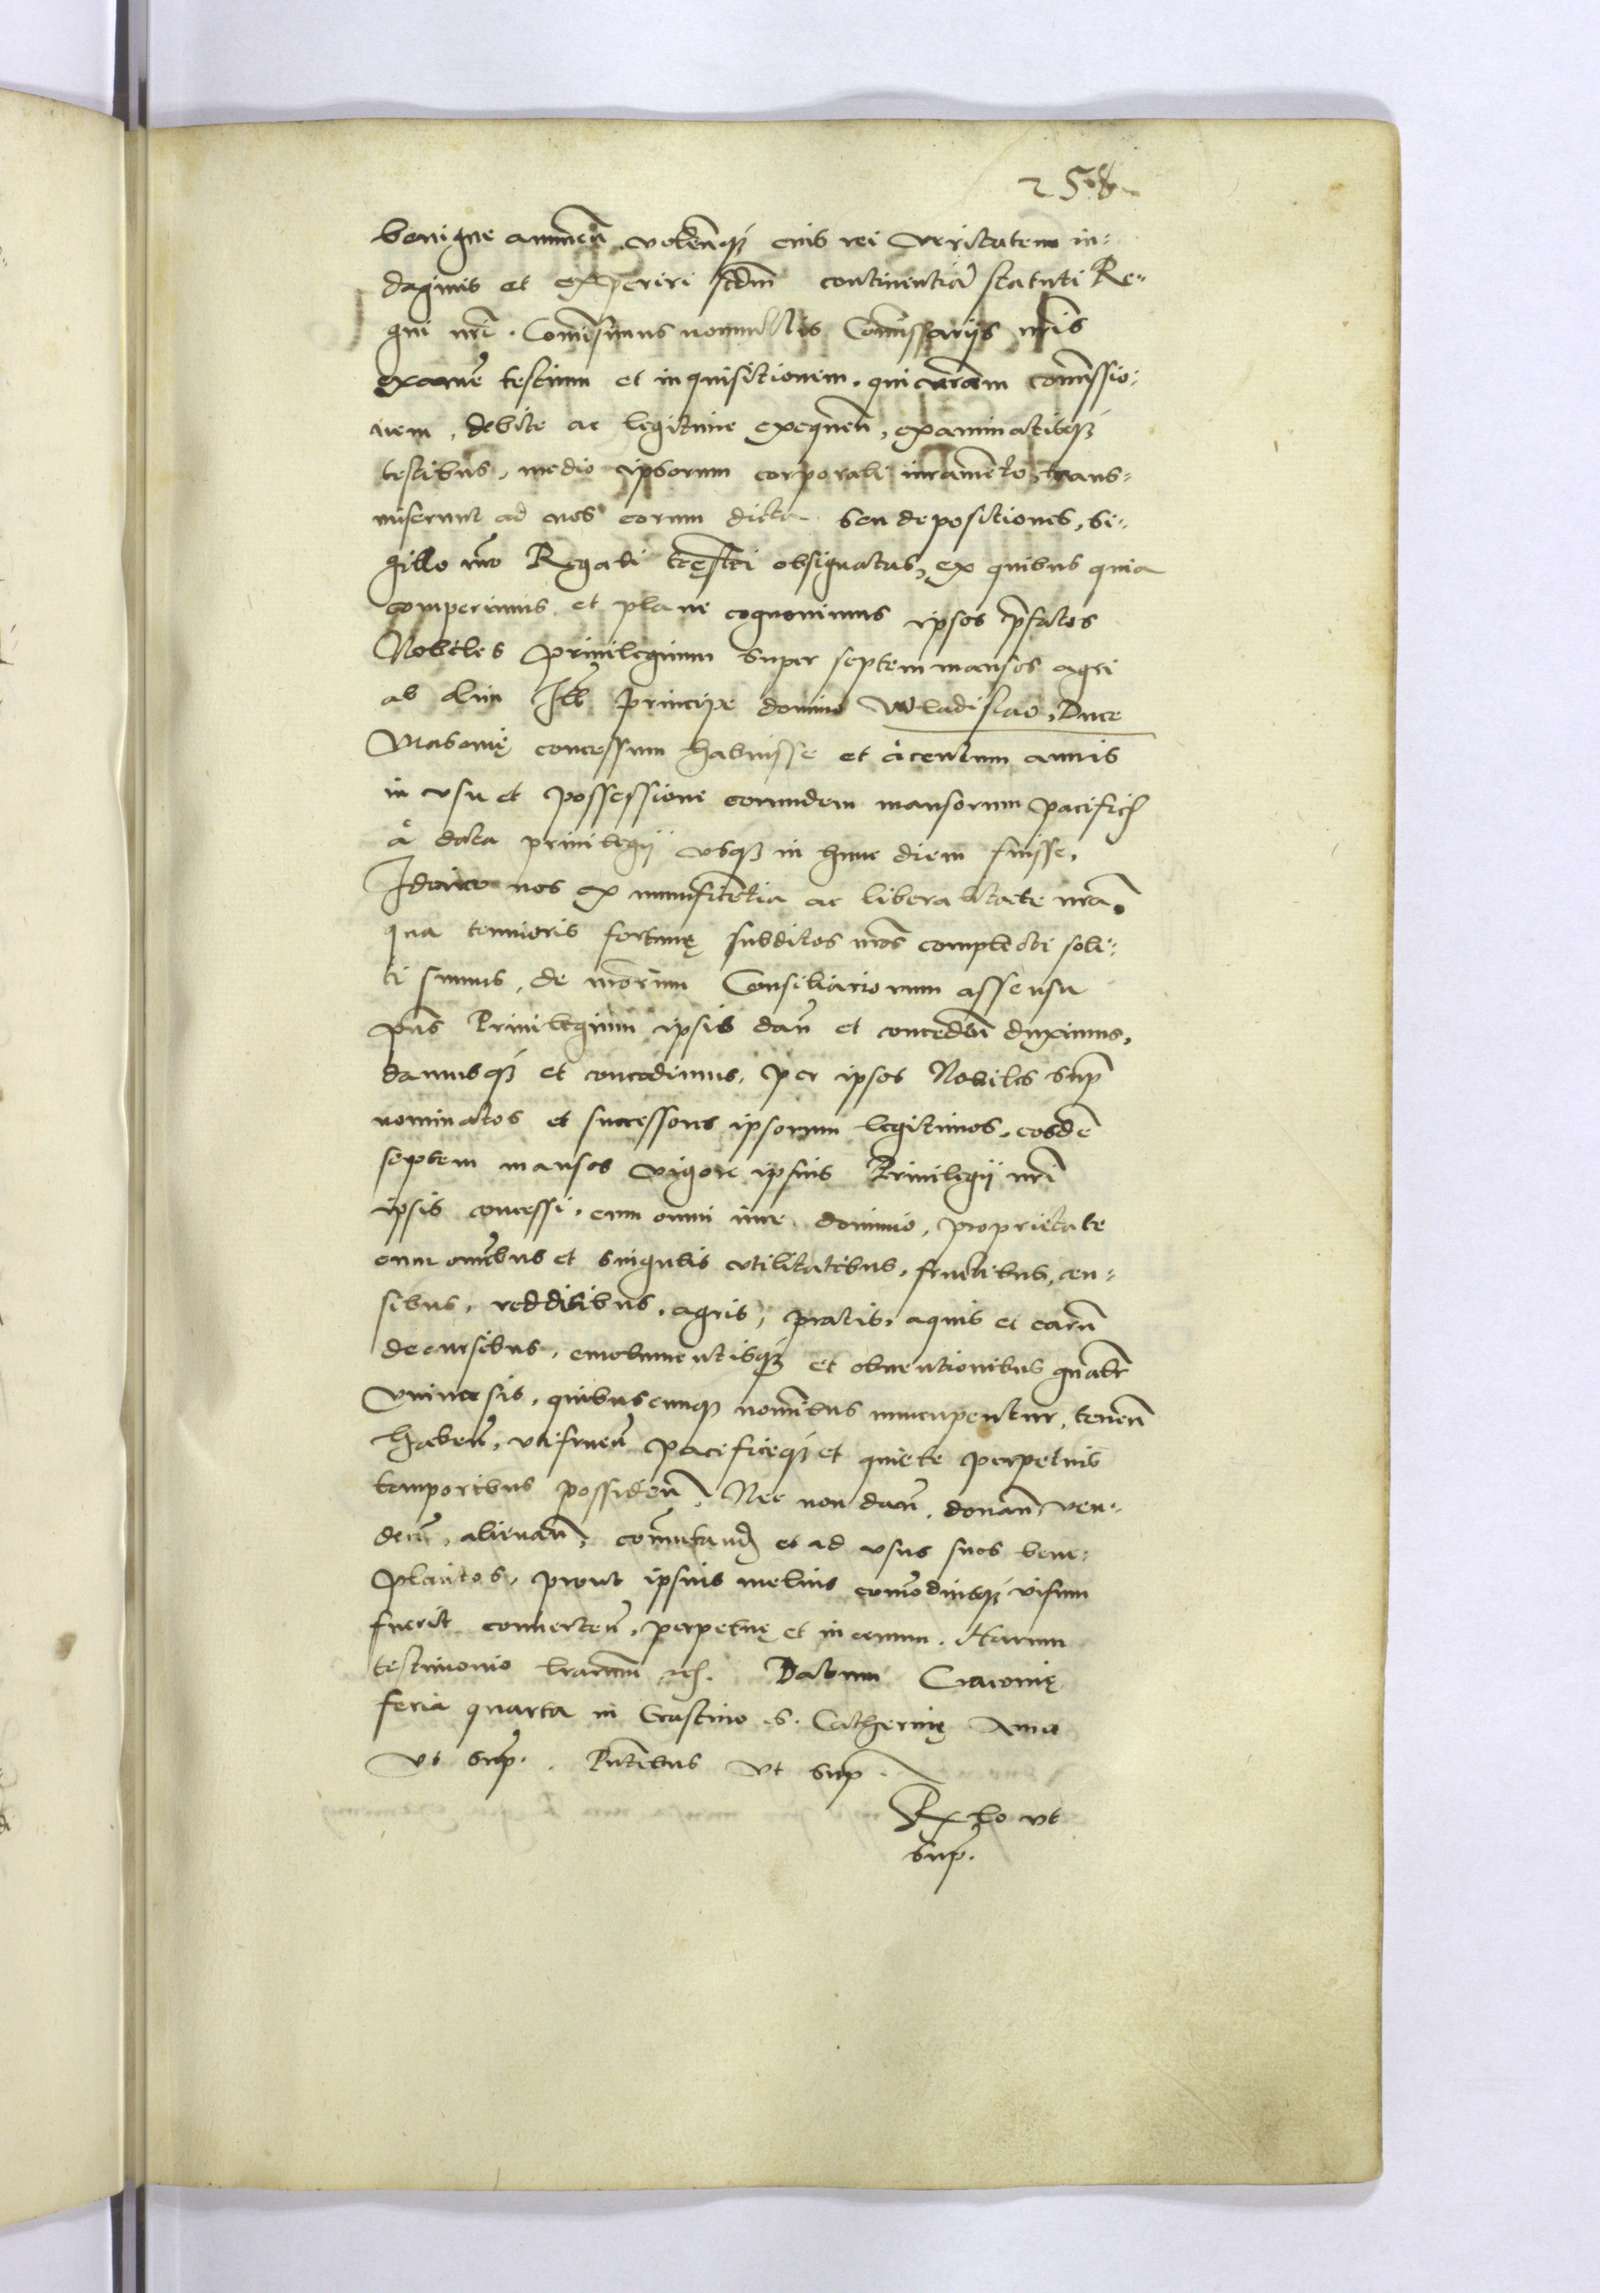 258
benigne annuen̄, volen̄q̨ʒ eius rei veritatem in-
daginis et experiri scdm̄ continentiā statuti Re-
gni nr̄i. Com̄isimus nonnullis Com̄issarijs nr̄is
examē testium et inquisitionem, qui nr̄am com̄issio-
nem, debite ac legitime exequen̄, examinatisq̨ʒ
testibus, medio ipsorum corporali iuramēto, trans-
miserunt ad nos eorum dicta seu depositiones, si-
gillo nr̄o Regali obsignatas, ex quibus quia
comperimus et plane cognouimus ipsos p̄fatos
Nobiles Priuilegium super septem mansos agri
ab olim Ill̄ Principe domino Wladislao, Duce
Masouię concessum habuisse et à centum annis
in vsu et possessione eorumdem mansorum pacifice
à data priuilegij vsq̨ʒ in hunc diem fuisse,
Idcirco nos ex munificētia ac liberalitate nr̄a,
qua tenuioris fortunę subditos nr̄os complecti soli-
ti sumus, de nr̄orum Consiliariorum assensu
pn̄s Priuilegium ipsis dan̄ et conceden̄ duximus,
damusq̨ʒ et concedimus, per ipsos Nobiles sup̄
nominatos et successores ipsorum legitimos, eosdē
septem mansos vigore ipsius Priuilegij nr̄i
ipsis concessi, cum omni iure dominio, proprietate
cum om̄ibus et singulis vtilitatibus, fructibus, cen-
sibus, redditibus, agris, pratis, aquis et earū
decursibus, emolumentisq̨ʒ et obuentionibus gn̄alr̄
vniuersis, quibuscunq̨ʒ nomībus nuncupentur, tenen̄
haben̄, vtifruen̄ pacificeq̨ʒ et quiete perpetuis
temporibus possiden̄, Nec non dan̄, donan̄ ven-
den̄, alienan̄, com̄utand̄ et ad vsus suos bene-
placitos, prout ipsius melius com̄odiusq̨ʒ visum
fuerit conuerten̄, perpetuę et in ęuum. Harum
testimonio lr̄arum etc̄. Datum Cracouię
feria quarta in Crastino S. Catherinę Anno
vt sup̄. Pn̄tibus vt sup̄.
Rela̅o vt
sup̄.